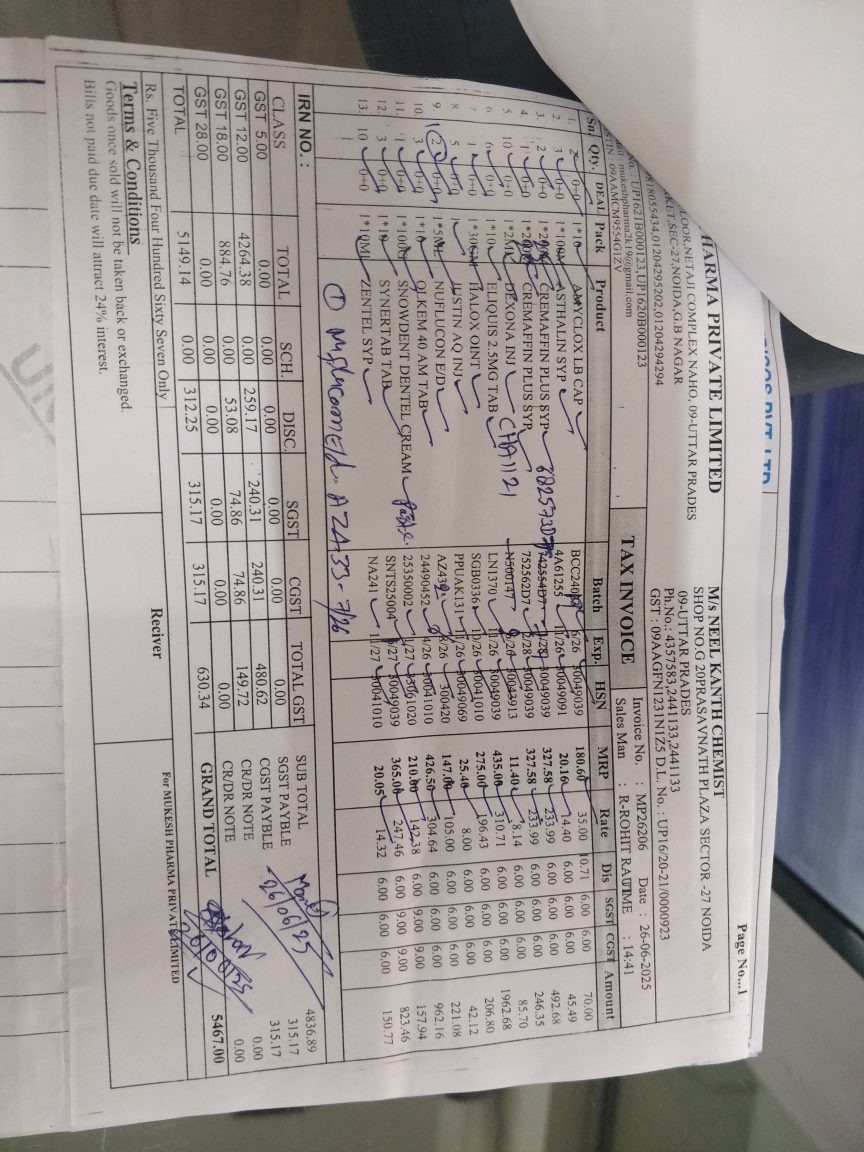 HARMA PRIVATE LIMITED
LOOR,NETAJI COMPLEX NAHO, 09-UTTAR PRADES
KET,SEC-27,NOIDA,G.B NAGAR
9818055434,01204295202,01204294294
No. : UP1621B000123,UP1620B000123
mukeshpharma2k19@gmail.com
GSTIN : 09AAMCM9554G1ZV
Page No...1
M/s NEEL KANTH CHEMIST
SHOP NO.G 20PRASAVNATH PLAZA SECTOR -27 NOIDA
09-UTTAR PRADES
Ph.No.: 4357583,2441133,2441133
GST : 09AAGFN1231N1Z5 D.L. No. : UP16/20-21/0000923
TAX INVOICE
Invoice No. : MP26206 Date : 26-06-2025
Sales Man : R-ROHIT RAUTIME : 14:41
Sn. Qty. DEAL Pack Product Batch Exp. HSN MRP Rate Dis SGST CGST Amount
1. 2 0+0 1*10 AMYCLOX LB CAP 6/26 30049039 180.60 35.00 10.71 6.00 6.00 70.00
2. 3 0+0 1*100M ASTHALIN SYP 4A61255 11/26 30049091 20.16 14.40 6.00 6.00 6.00 45.49
3. 2 0+0 CREMAFFIN PLUS SYP 30049039 327.58 233.99 6.00 6.00 6.00 492.68
4. 1 0+0 CREMAFFIN PLUS SYP 752562D7 2/28 30049039 327.58 233.99 6.00 6.00 6.00 246.35
5. 10 0+0 1*2ML DEXONA INJ CHA1121 N500147 11.40 8.14 6.00 6.00 6.00 85.70
6. 6 0+0 1*10 ELIQUIS 2.5MG TAB LN1370 30049039 435.00 310.71 6.00 6.00 6.00 1962.68
7. 1 0+0 1*30GM HALOX OINT SGB0336 30041010 275.00 196.43 6.00 6.00 6.00 206.80
8. 5 0+0 JUSTIN AQ INJ PPUAK131 11/26 30049069 25.40 8.00 6.00 6.00 6.00 42.12
9. 2 0+0 1*5ML NUFLUCON E/D 300420 147.00 105.00 6.00 6.00 6.00 221.08
10. 3 0+0 1*10 OLKEM 40 AM TAB 24490452 4/26 30041010 426.50 304.64 6.00 6.00 6.00 962.16
11. 1 0+0 1*100G SNOWDENT DENTEL CREAM Paste. 25350002 1/27 33061020 210.00 142.38 6.00 9.00 9.00 157.94
12. 3 0+0 1*10 SYNERTAB TAB SNTS25004 30049039 365.00 247.46 6.00 9.00 9.00 823.46
13. 10 0+0 1*10ML ZENTEL SYP NA241 11/27 30041010 20.05 14.32 6.00 6.00 6.00 150.77
IRN NO. :
CLASS TOTAL SCH. DISC. SGST CGST TOTAL GST
GST 5.00 0.00 0.00 0.00 0.00 0.00 0.00
GST 12.00 4264.38 0.00 259.17 240.31 240.31 480.62
GST 18.00 884.76 0.00 53.08 74.86 74.86 149.72
GST 28.00 0.00 0.00 0.00 0.00 0.00 0.00
TOTAL 5149.14 0.00 312.25 315.17 315.17 630.34
SUB TOTAL 4836.89
SGST PAYBLE 315.17
CGST PAYBLE 315.17
CR/DR NOTE 0.00
CR/DR NOTE 0.00
GRAND TOTAL 5467.00
26/06/25
Rs. Five Thousand Four Hundred Sixty Seven Only
Terms & Conditions
Goods once sold will not be taken back or exchanged.
Bills not paid due date will attract 24% interest.
Reciver
For MUKESH PHARMA PRIVATE LIMITED